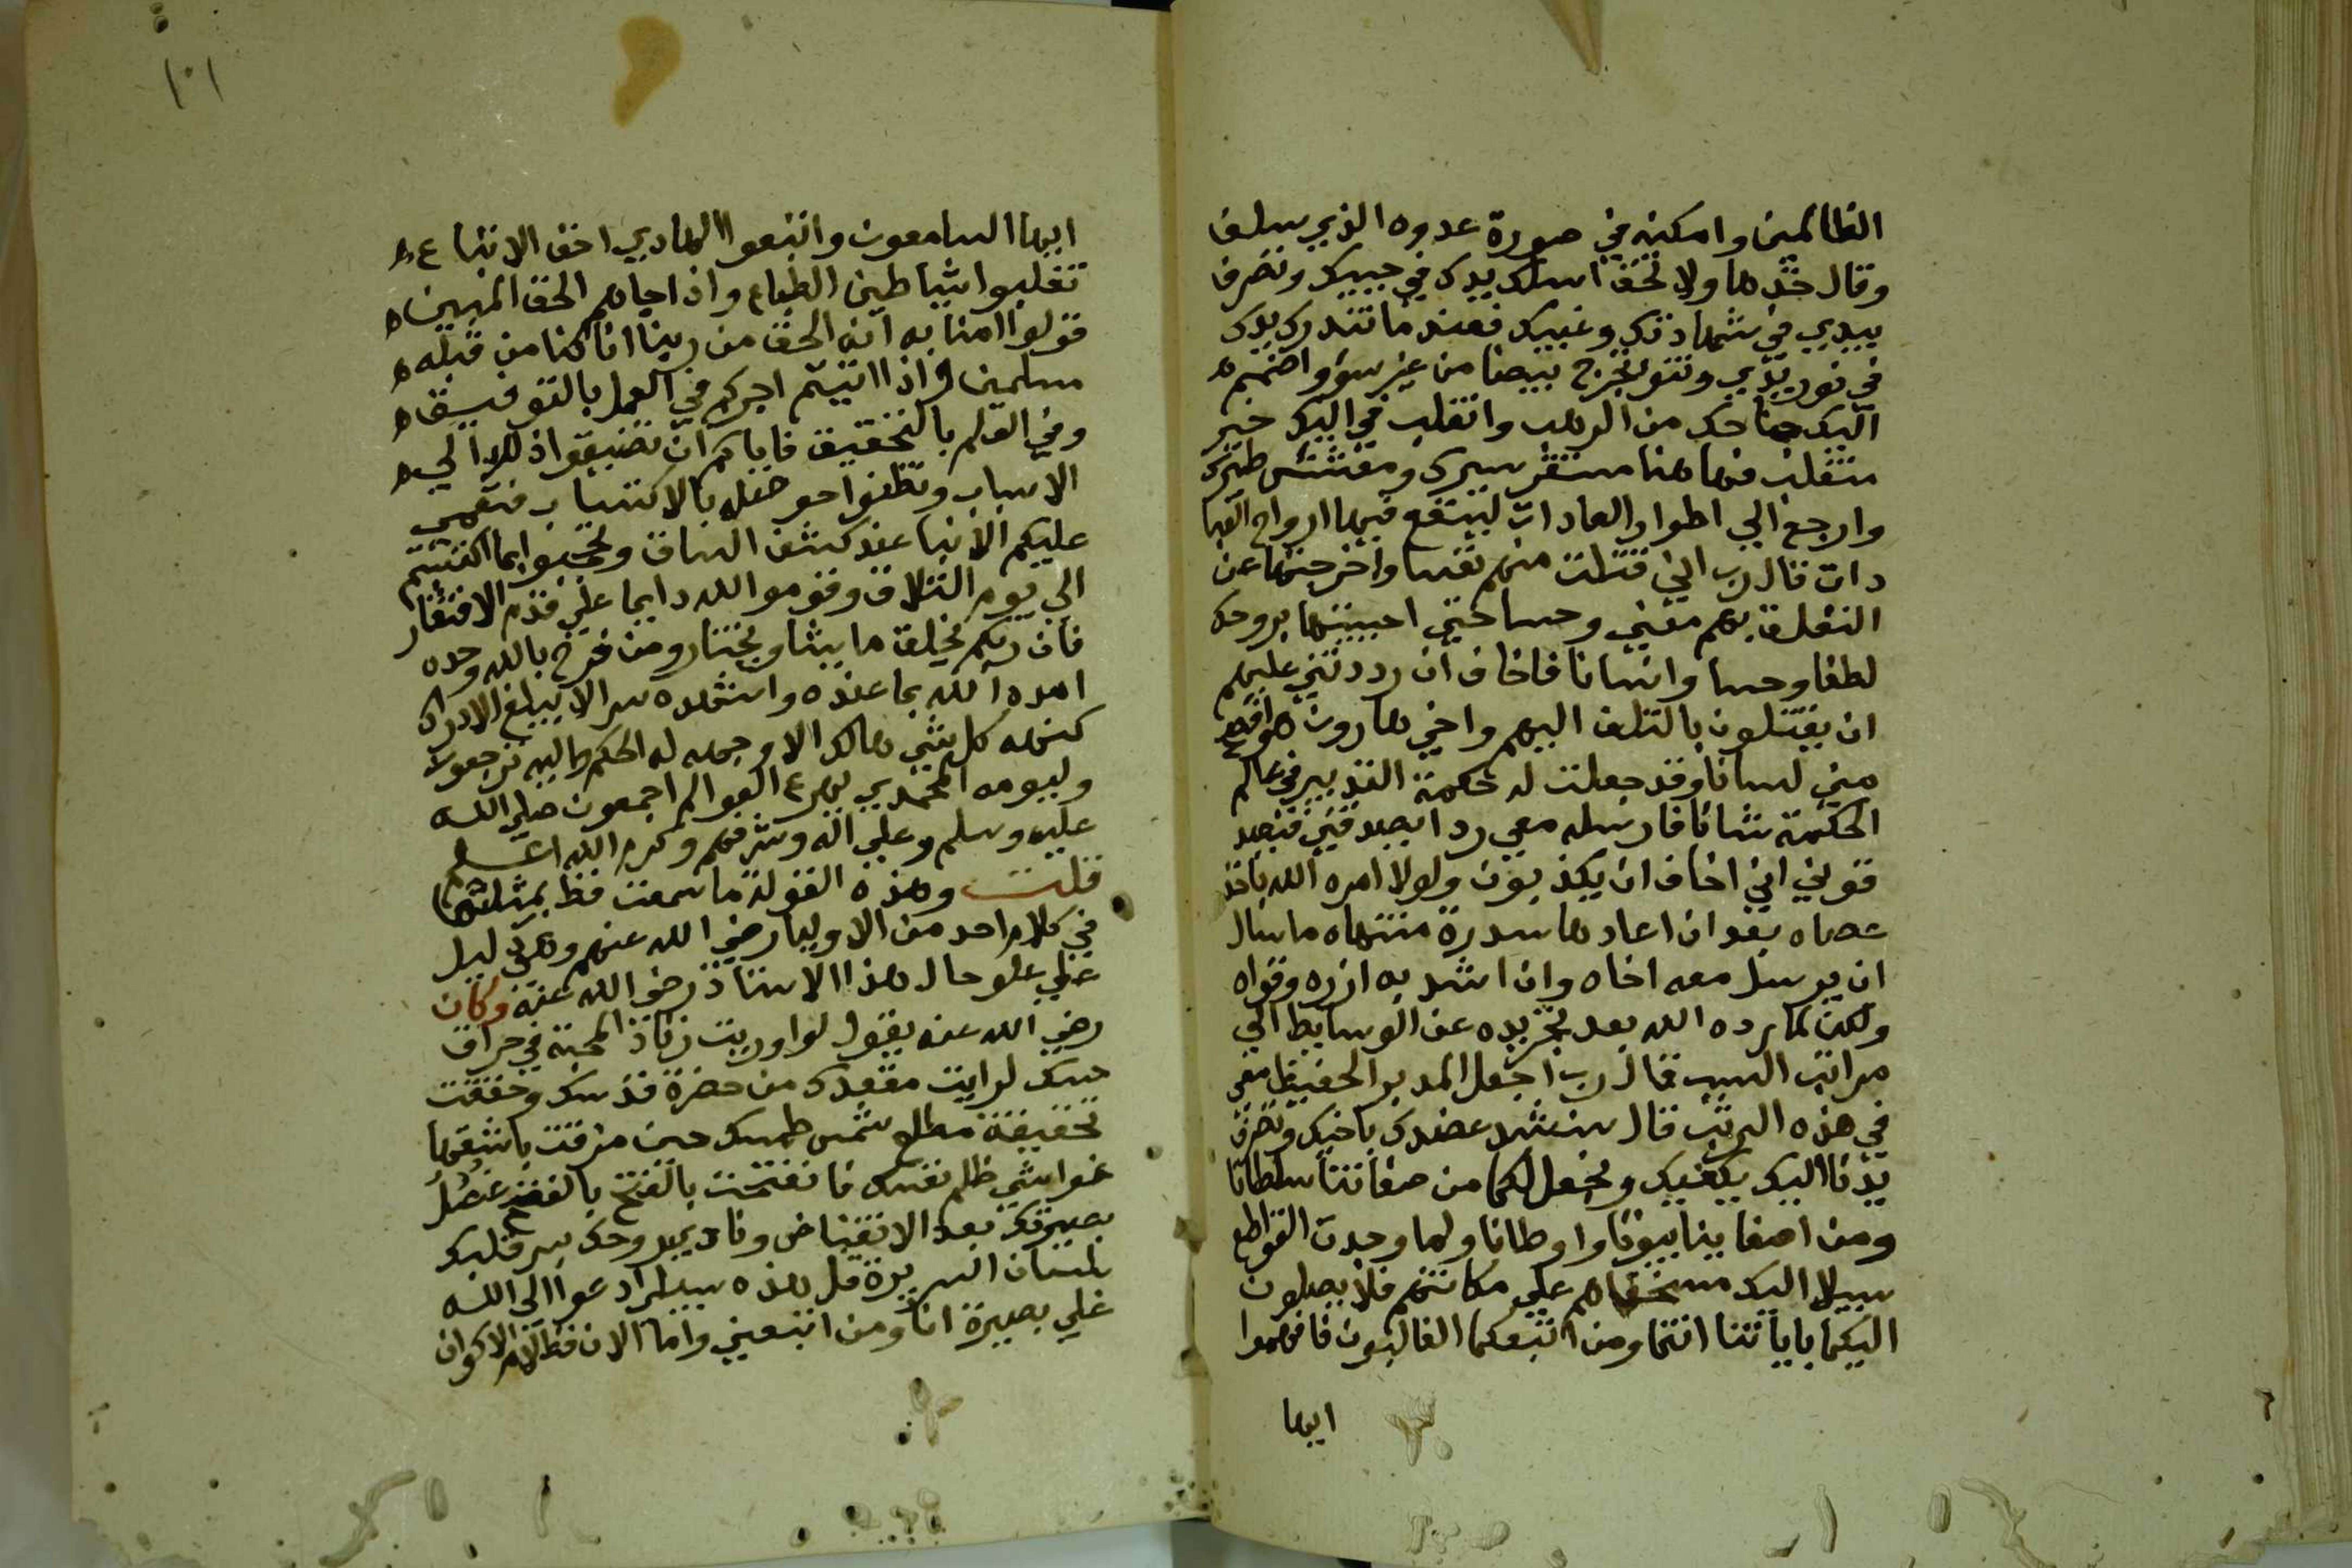 الظالمين وامكنه في صورة عدوه الذي سلف
وقال خذها ولا تخف اسلك يدك في جيبك وتصرف
بيدي في شهادتك وغيبك فعند ما تندرك يدك
في نور يدي وتنو تخرج بيضا من غير سوء واضمم
اليك جناحك من الرهب وانقلب في اليك خير
منقلب فها هنا مستقر سيرك ومفتش طيرك
وارجع الي اطوار العادات لينتفع فيها ارواح القيا
دات قال رب اني قتلت منهم نفسا واخرجتها عن
التعلق بهم معني وحسا حتي احييتها بروحك
لطفا وحسا وانسانا فاخاف ان رددتني عليهم
ان يقتلون بالتلف اليهم واخي هارون هو افصح
مني لسانا وقد جعلت له حكمة التدبير في عالم
الحكمة شانا فارسله معي ردا يصدقني فتصد
قوني اني اخاف ان يكذبون ولولا امره الله باخذ
عصاه بعد ان اعادها سدرة منتهاه ما سال
ان يرسل معه اخاه وان اشد به ازره وقواه
ولكن لما رده الله بعد تجريده عن الوسايط الي
مراتب السبب قال رب اجعل المدبر الحفيظ معي
في هذه الرتب قال سنشد عضدك باخيك وتصرف
يدنا اليك يكفيك ونجعل لكما من صفاتنا سلطانا
ومن اصفايينا بيوتا واوطانا ولما وجدت القواطع
سبيلا اليك مسخناهم علي مكانتهم فلا يصلون
اليكما باياتنا انتما ومن اتبعكما الغالبون فافهموا
ايها
١٠١
ايها السامعون واتبعوا الهادي احق الاتباع
تغلبوا شياطين الطباع واذا جاكم الحق المبين
قولوا امنا به انه الحق من ربنا انا كنا من قبله
مسلمين واذا اتيتم اجركم في العمل بالتوفيق
وفي العلم بالتحقيق فاياكم ان تضيفوا ذلك الي
الاسباب وتظنوا حو صله بالاكتساب فتعمي
عليكم الانبا عند كشف الساق وتحجبوا بما اكتسبتم
الي يوم التلاق وقوموا لله دايما علي قدم الافتقار
فان ربكم يخلق ما يشا ويختار ومن فرح بالله وحده
امده الله بما عنده واشهده سرا لا يبلغ الادراك
كنهه كل شي هالك الا وجهه له الحكم واليه ترجعون
وليومه المحمدي يهرع العوالم اجمعون صلي الله
عليه وسلم وعلي اله وشرفهم وكرم الله اعلم
قلت وهذه القولة ما سمعت قط بمثلها
في كلام احد من الاوليا رضي الله عنهم وهي دليل
علي علو حال هذا الاستاذ رضي الله عنه وكان
رضي الله عنه يقول لو اوريت زناد المحبة في حراق
حسك لرايت مقعدك من حضرة قدسك وحققت
تحقيقة مطلع شمس طمسك حين مزقت باشعتها
غواشي ظلم نفسك فانفتحت بالفتح
بصيرتك بعد الانقباض ونادي بروحك سر قلبك
بلسان السريرة قل هذه سبيلي ادعوا الي الله
علي بصيرة انا ومن اتبعني واما الان فظلام الاكوان